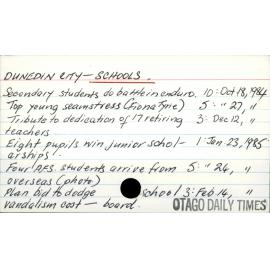 DUNEDIN CITY — SCHOOLS.
Secondary students do battle in enduro. 10: Oct 18, 1984
Top young seamstress (Fiona Tyrie) 5: " 27, "
Tribute to dedication of 17 retiring 3: Dec 12, "
teachers
Eight pupils win junior schol- 1: Jan 23, 1985
arships.
Four AFS students arrive from 5: " 24, "
overseas (photo)
Plan bid to dodge school 3: Feb 14, "
vandalism cost — board.
OTAGO DAILY TIMES